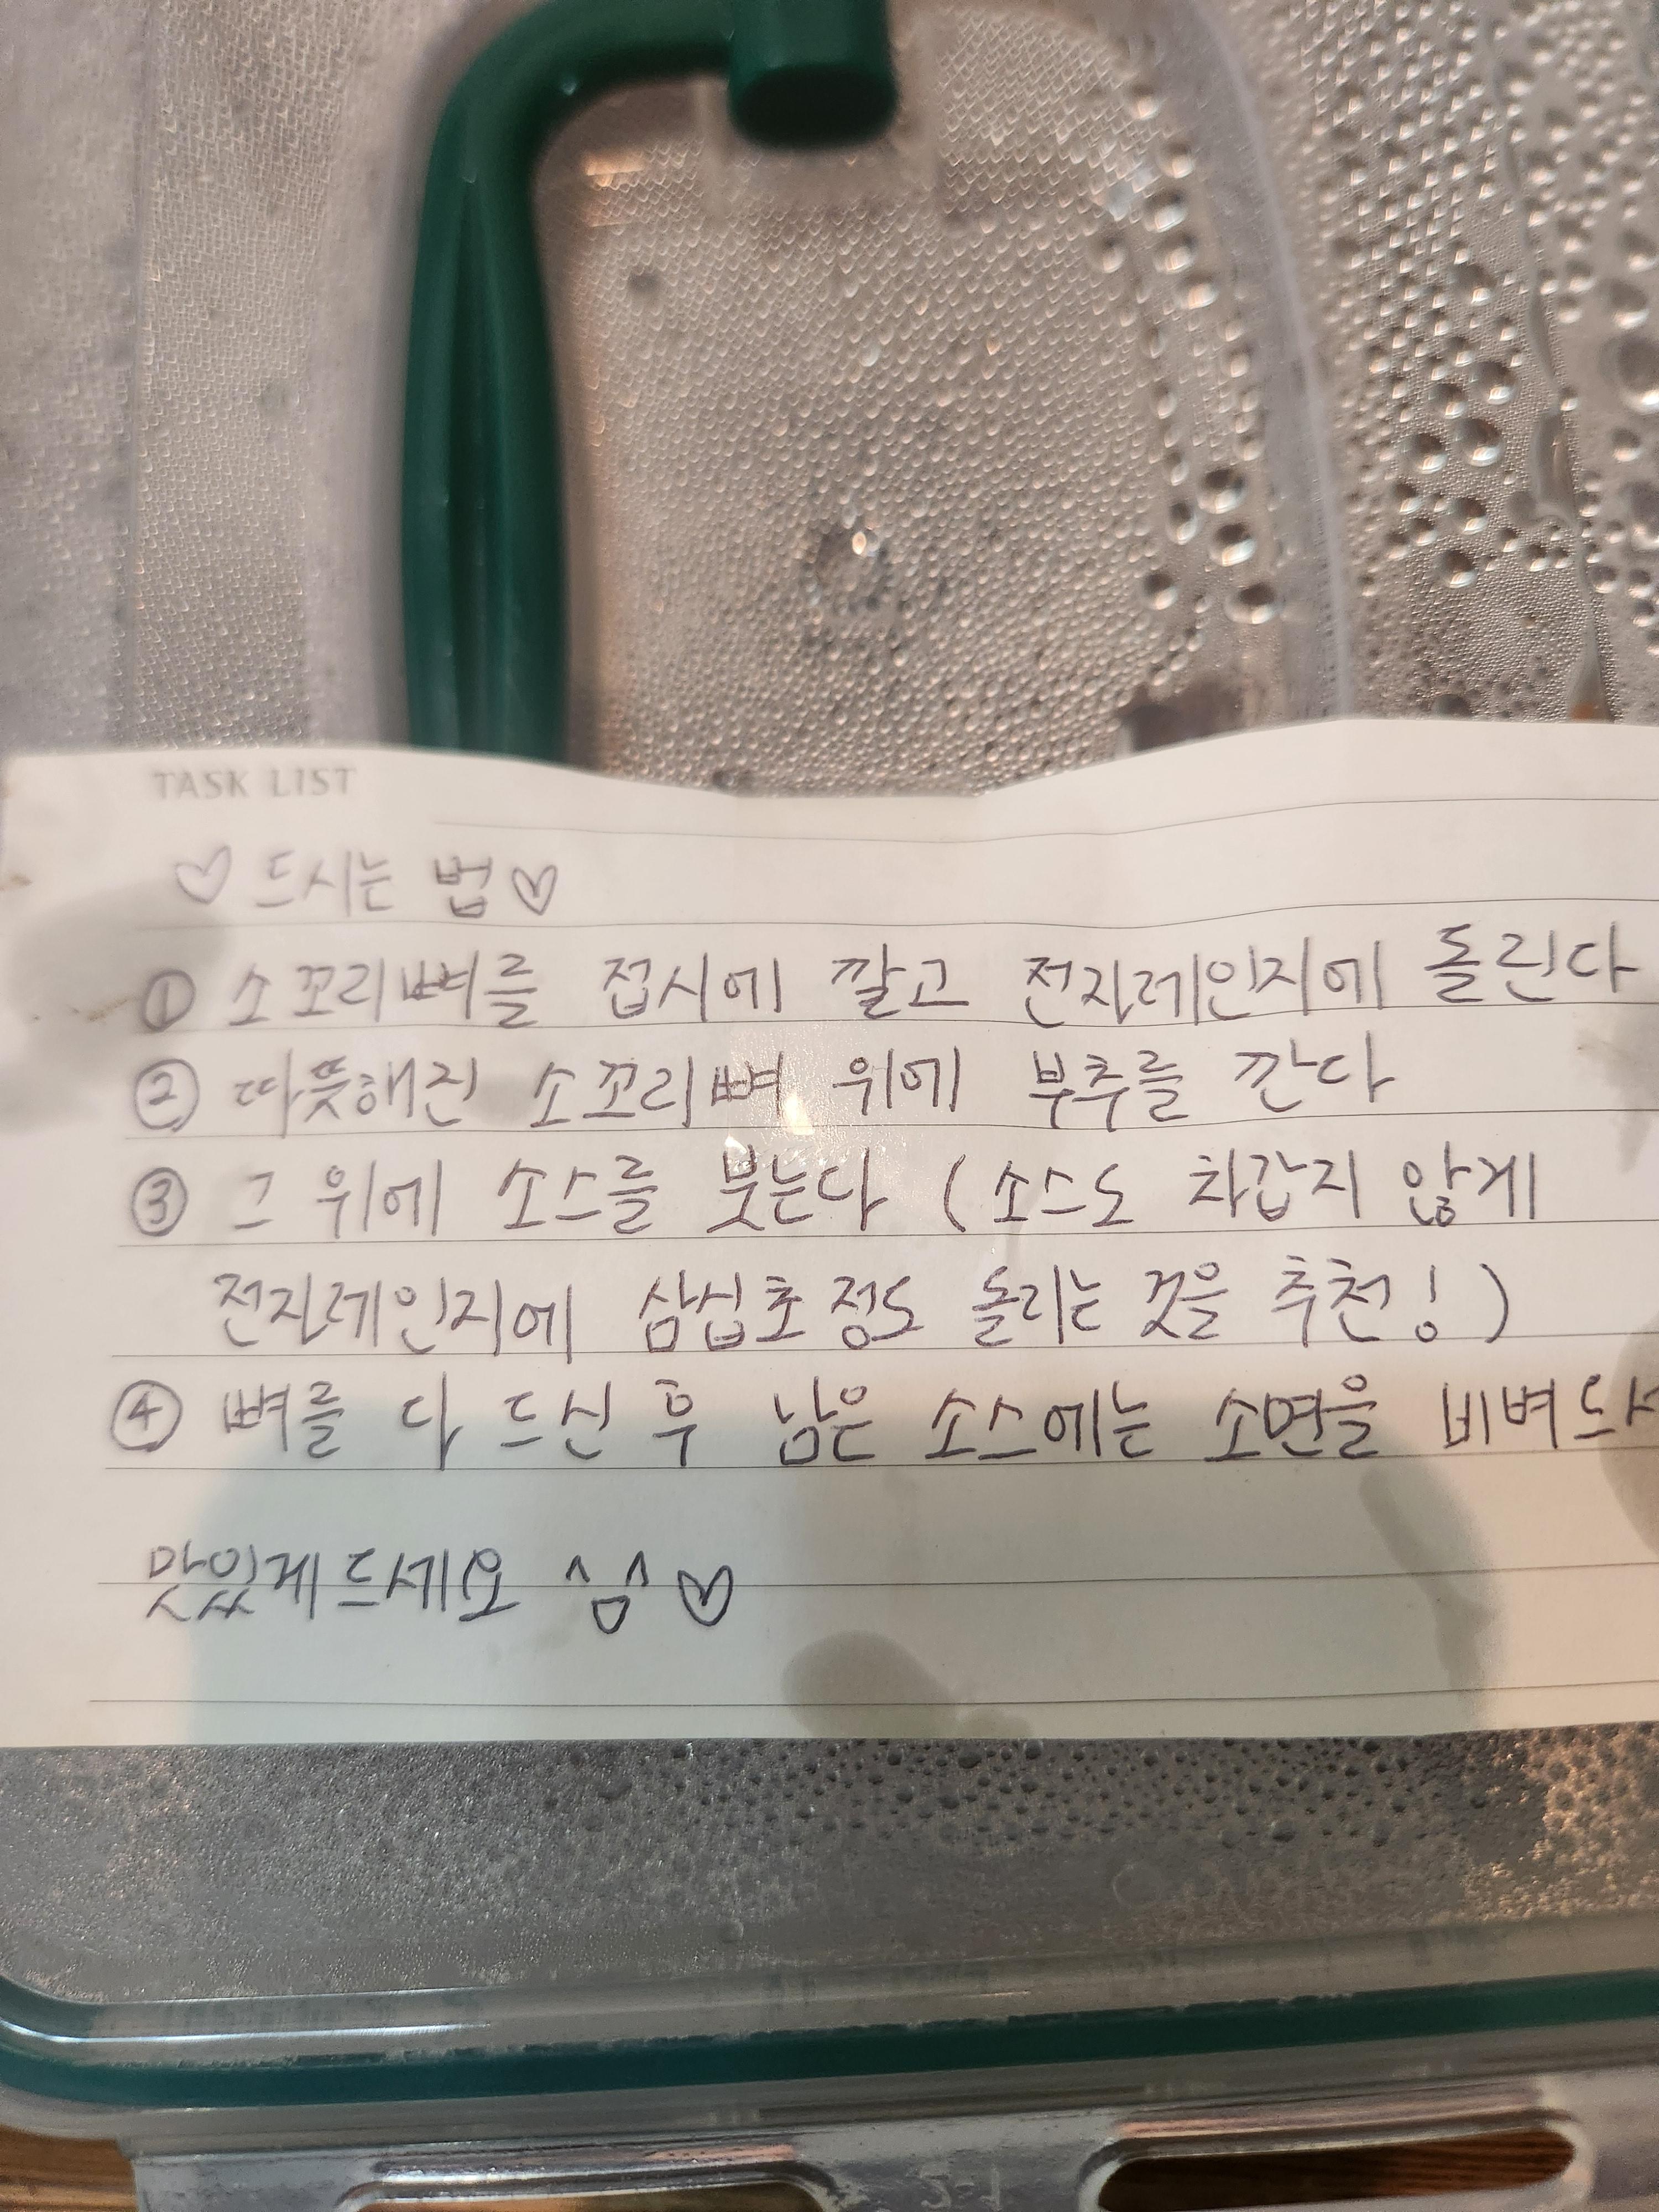 TASK LIST
♡ 드시는 법 ♡
① 소꼬리뼈를 접시에 깔고 전자레인지에 돌린다
② 따뜻해진 소꼬리뼈 위에 부추를 깐다
③ 그 위에 소스를 붓는다 (소스도 차갑지 않게
전자레인지에 삼십초 정도 돌리는 것을 추천!)
④ 뼈를 다 드신 후 남은 소스에는 소면을 비벼드
맛있게 드세요 ^ㅁ^ ♡